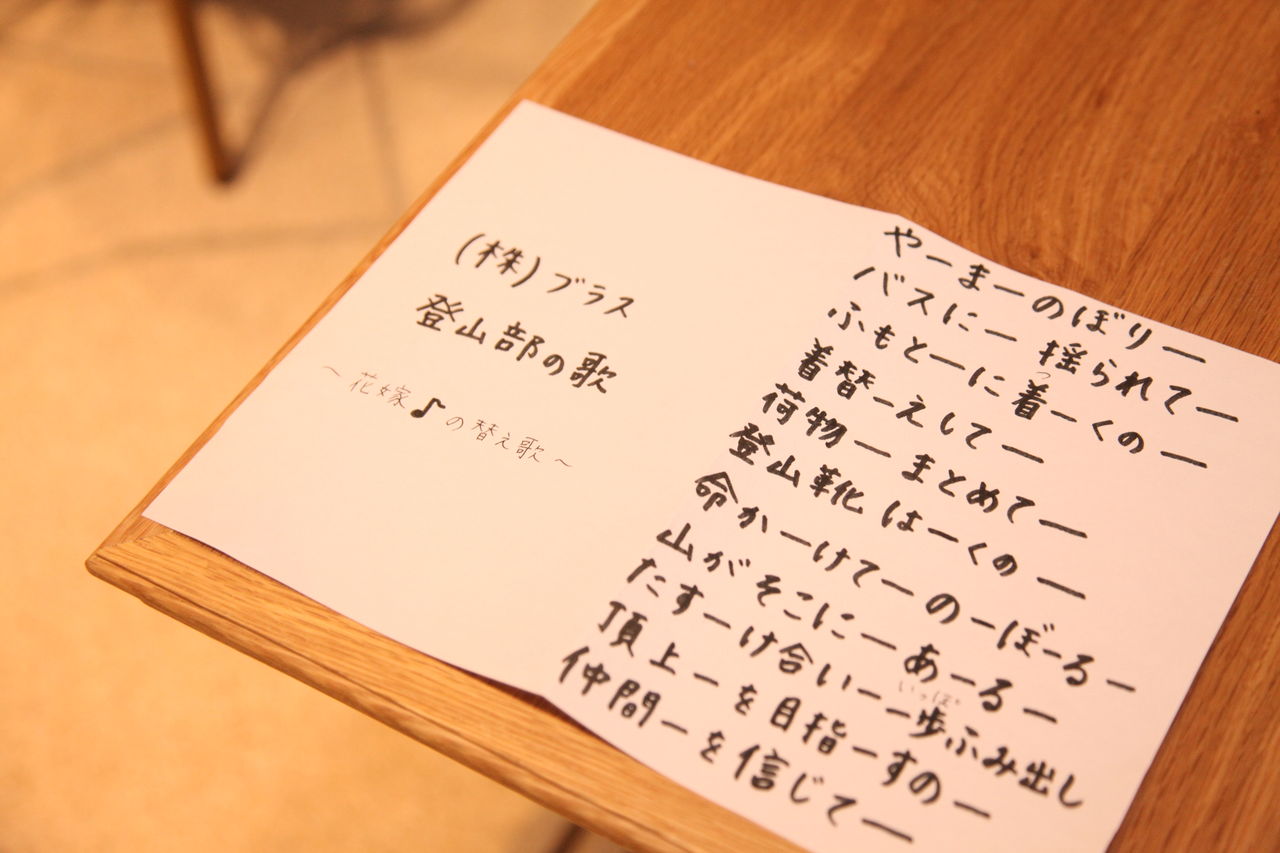 (株)ブラス
登山部の歌
～花嫁♪の替え歌～
やーまーのぼりー
バスにー 揺られてー
ふもとーに着ーくのー
着替ーえしてー
荷物ーまとめてー
登山靴 はーくのー
命かーけてーのーぼーるー
山がそこにーあーるー
たすーけ合いー一歩ふみ出し
いっぽ
頂上ーを目指ーすのー
仲間ーを信じてー